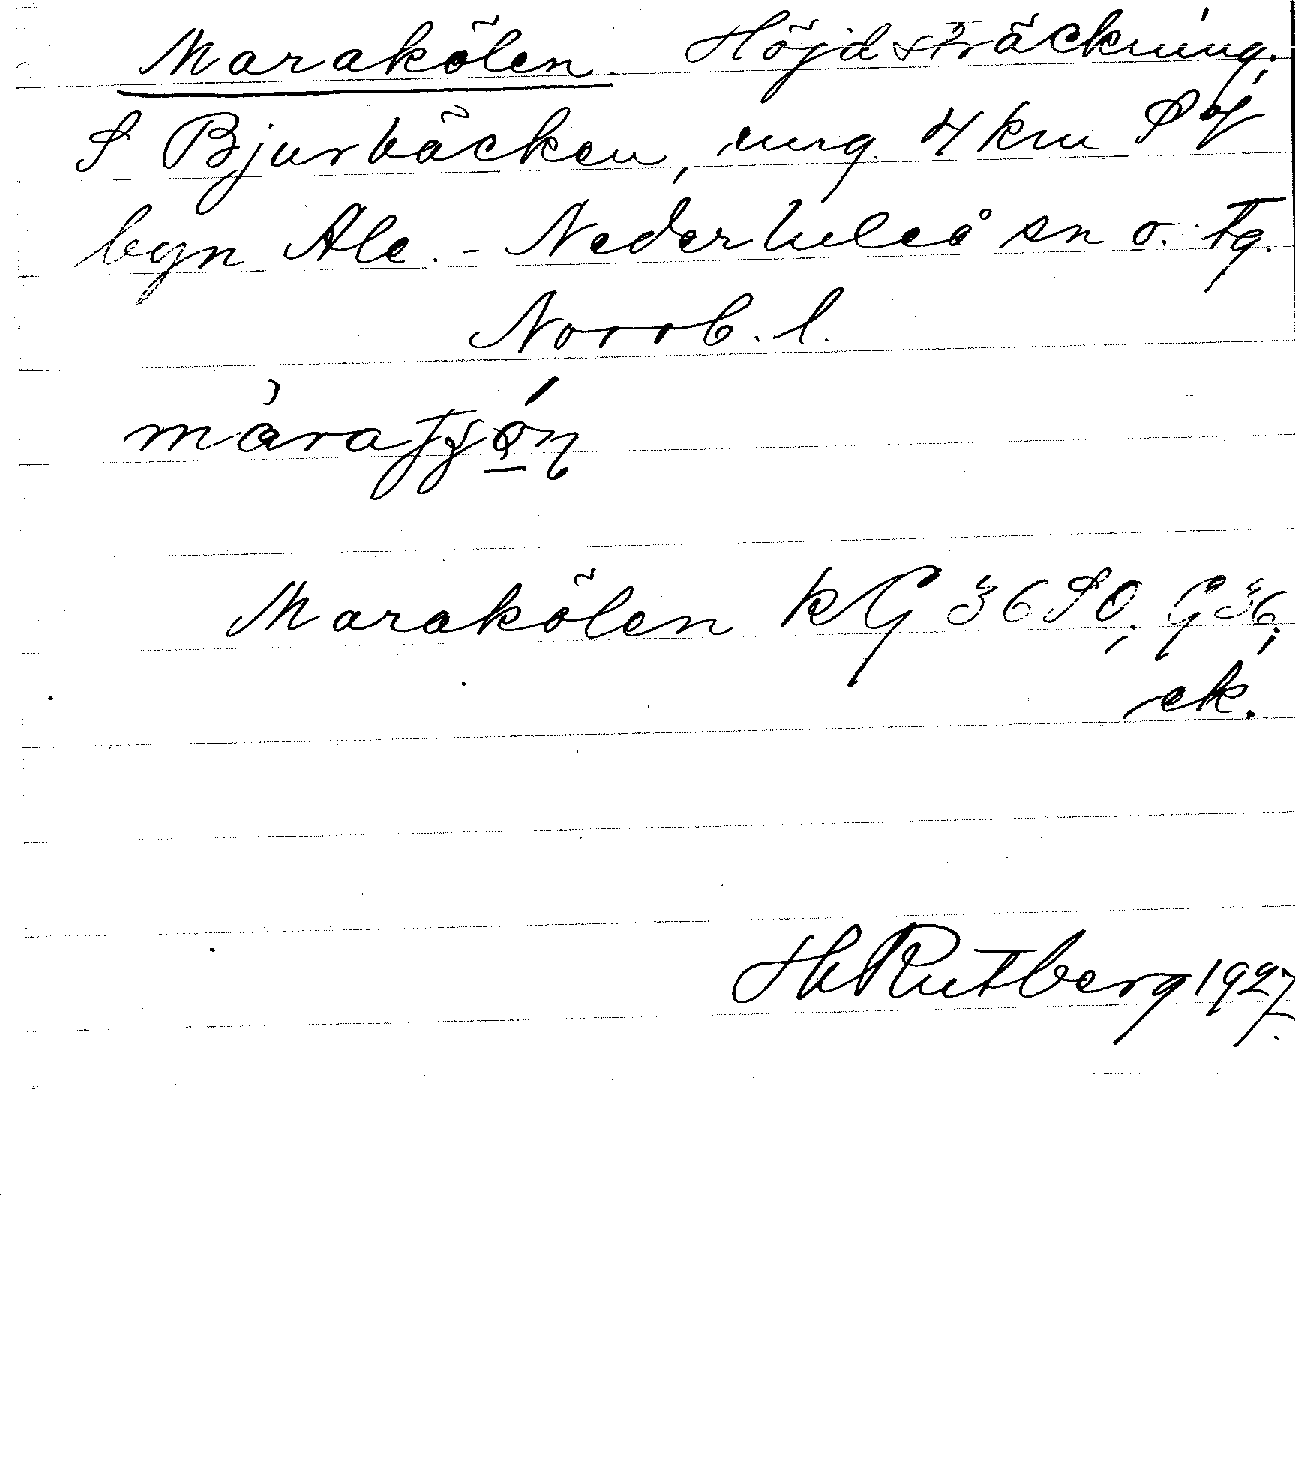 Marakölen. Höjdsträckning.
S Bjurbäcken, ung. 4 km S of
byn Ale. - Nederluleå sn o. tg.
Norrb. l.
Marakölen kG 36 SO; G 36;
ek.
H Rutberg 1927.